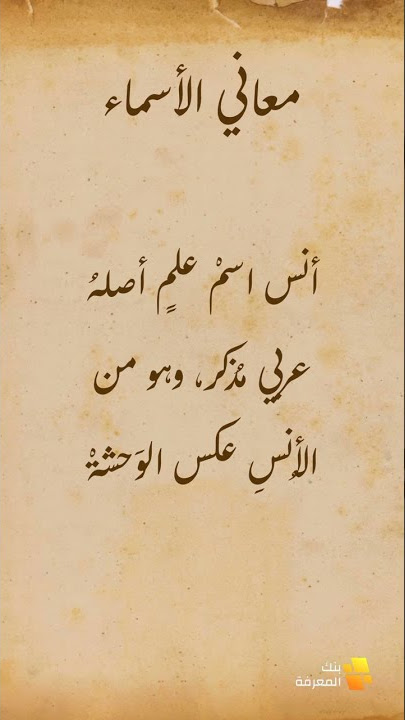 معاني الأسماء
أنس اسمْ علمٍ أصلهُ
عربي مُذكر، وهو من
الأِنسِ عكس الوَحشةْ
بنك
المعرفة